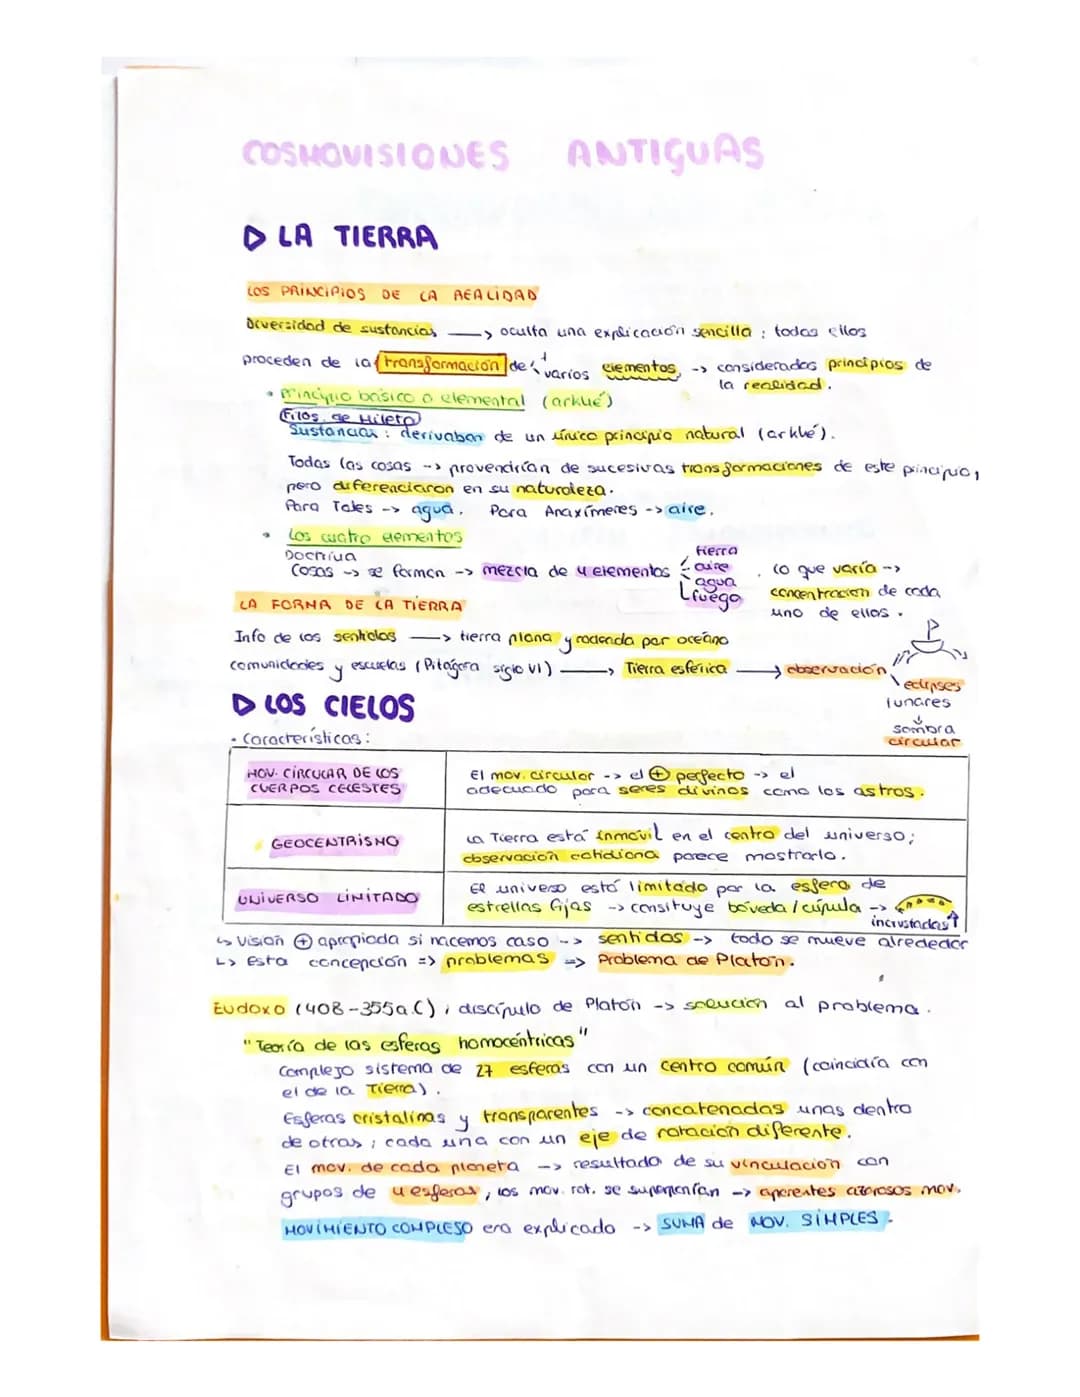 COSMOVISIONES ANTIGUAS
▷ LA TIERRA
LOS PRINCIPIOS DE LA REALIDAD
Diversidad de sustancias —> oculta una explicación sencilla ; todas ellas
proceden de la transformación de 1 varios elementos, -> considerados principios de
la realidad.
• Principio básico o elemental (arkhé)
Filos. de Mileto
Sustancias : derivaban de un único principio natural (arkhé).
Todas las cosas --> provendrían de sucesivas transformaciones de este principio,
pero diferenciaron en su naturaleza.
Para Tales --> agua. Para Anaxímenes -> aire.
• Los cuatro elementos
Doctrina
Cosas -> se forman -> mezcla de 4 elementos
tierra
aire
agua
fuego
. Lo que varía -->
concentracion de cada
uno de ellos.
LA FORMA DE LA TIERRA
Info de los sentidos —> tierra plana y rodeada por océano
comunidades y escuelas (Pitágora siglo VI) —> Tierra esférica —> observación
eclipses
lunares
sombra
circular
▷ LOS CIELOS
• Características :
MOV. CIRCULAR DE LOS
CUERPOS CELESTES
El mov. circular --> el ⊕ perfecto -> el
adecuado para seres divinos como los astros.
GEOCENTRISMO
La Tierra está inmóvil en el centro del universo;
observación cotidiana parece mostrarlo.
UNIVERSO LIMITADO
El universo está limitado por la esfera de
estrellas fijas -> consituye bóveda / cúpula ->
incrustadas
↳ Visión ⊕ apropiada si hacemos caso --> sentidos --> todo se mueve alrededor
↳ Esta concepción => problemas => Problema de Platón.
Eudoxo (408-355a.C) ; discípulo de Platón -> solución al problema.
"Teoría de las esferas homocéntricas"
Complejo sistema de 27 esferas con un centro común (coincidía con
el de la Tierra).
Esferas cristalinas y transparentes --> concatenadas unas dentro
de otras ; cada una con un eje de rotación diferente.
El mov. de cada planeta --> resultado de su vinculación con
grupos de 4 esferas, los mov. rot. se superponían -> aparentes azarosos mov.
MOVIMIENTO COMPLESO era explicado --> SUMA de MOV. SIMPLES.